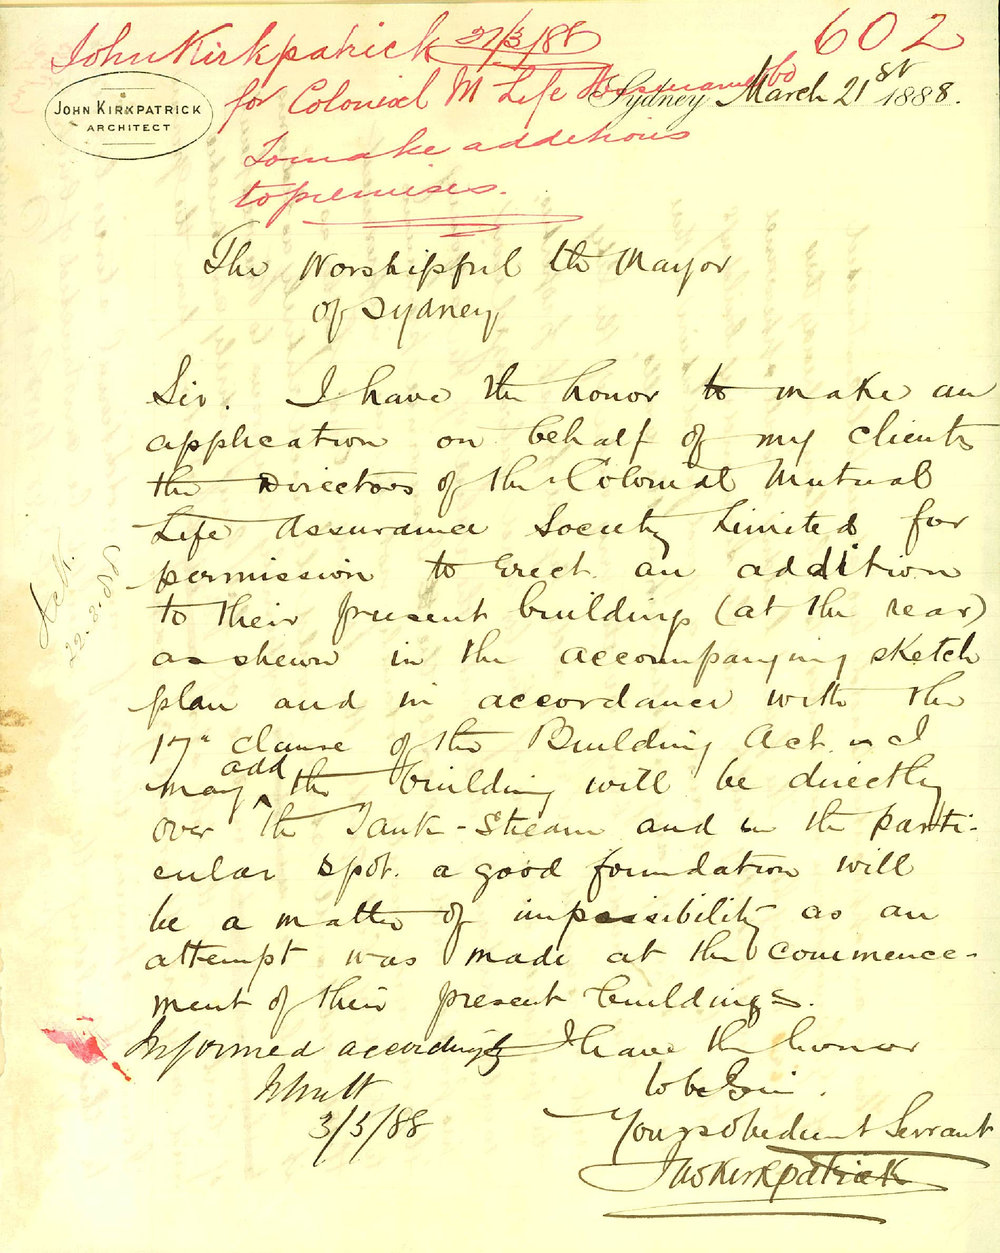 John Kirkpatrick 27/3/88
602
for Colonial M Life Assurance Co
To make additions
to premises.
JOHN KIRKPATRICK
ARCHITECT
Sydney March 21st 1888.
The Worshipful the Mayor
of Sydney
Sir. I have the honor to make an
application on behalf of my clients
the Directors of the Colonial Mutual
Life Assurance Society Limited for
permission to erect an addition
to their present building (at the rear)
as shewn in the accompanying sketch
plan and in accordance with the
17" clause of the Building Act. I
may add the building will be directly
over the Tank-Stream and in the parti-
cular spot. a good foundation will
be a matter of impossibility as an
attempt was made at the commence-
ment of their present buildings.
I have the honor
to be Sir.
Your obedient Servant
Jno Kirkpatrick
Informed accordingly
3/3/88
22.3.88